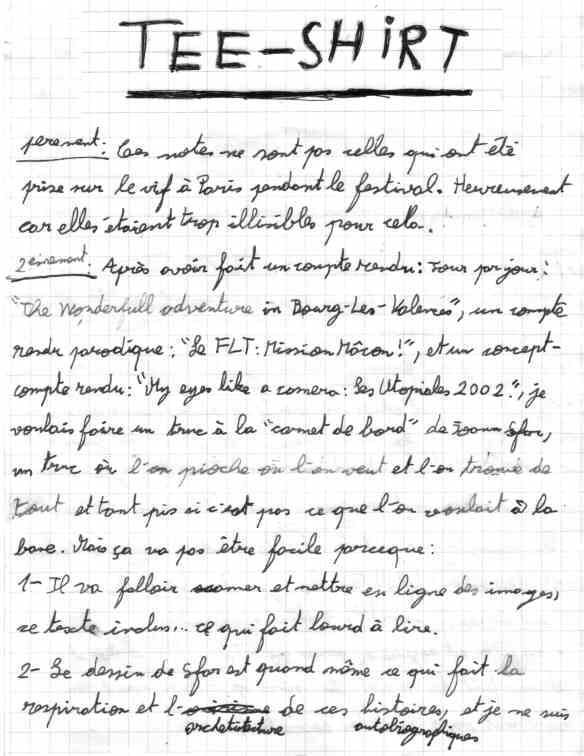 TEE-SHIRT
perement: Ces notes ne sont pas celles qui ont été
prise sur le vif à Paris pendant le festival. Heureusement
car elles étaient trop illisibles pour cela.
2einement: Après avoir fait un compte rendu: Jour par jour:
"The Wonderfull adventure in Bourg-Les-Valences", un compte
rendu parodique: "Le FLT: Mission Mâcon!", et un concept-
compte rendu: "My eyes like a camera: Les Utopiales 2002.", je
voulais faire un truc à la "carnet de bord" de Joann Sfar,
un truc où l'on pioche où l'on veut et l'on trouve de
tout et tant pis si c'est pas ce que l'on voulait à la
base. Mais ça va pas être facile parceque:
1- Il va falloir scanner et mettre en ligne des images,
ce texte inclus... ce qui fait lourd à lire.
2- Le dessin de Sfar est quand même ce qui fait la
respiration et l'architecture de ces histoires autobiographiques, et je ne suis